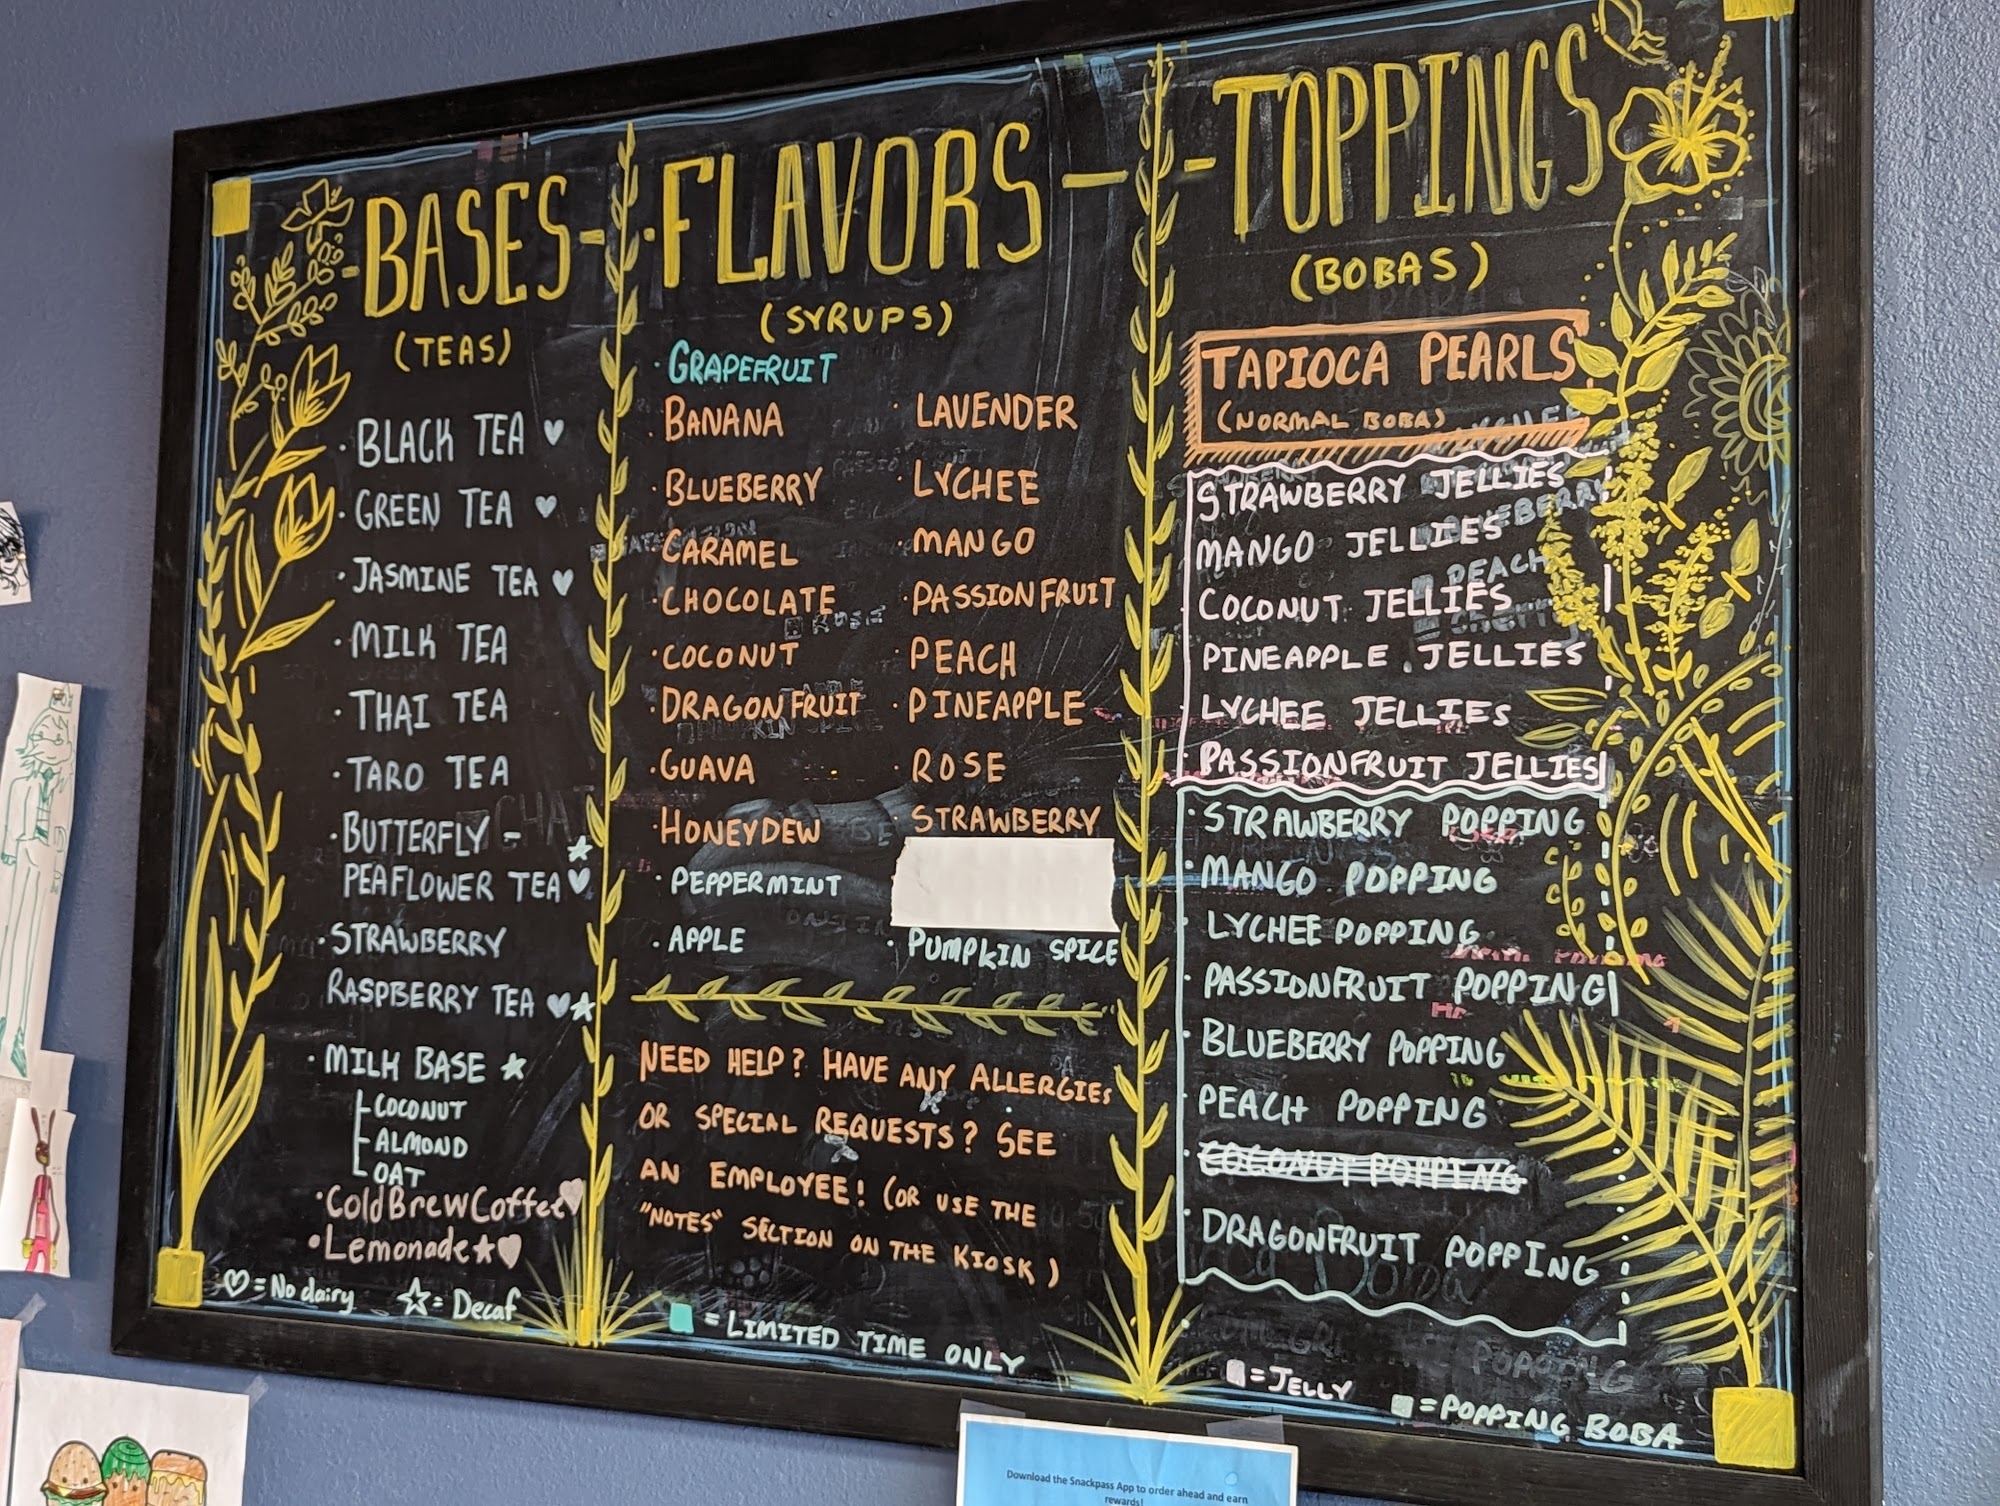 -BASES-
(TEAS)
· BLACK TEA ♥
· GREEN TEA ♥
· JASMINE TEA ♥
· MILK TEA
· THAI TEA
· TARO TEA
· BUTTERFLY - ★
PEAFLOWER TEA ♥
· STRAWBERRY
RASPBERRY TEA ♥★
· MILK BASE ★
COCONUT
ALMOND
OAT
· Cold Brew Coffee ♥
· Lemonade ★♥
♡ = No dairy ☆ = Decaf
· FLAVORS -
(SYRUPS)
· GRAPEFRUIT
· BANANA
· BLUEBERRY
· CARAMEL
· CHOCOLATE
· COCONUT
· DRAGONFRUIT
· GUAVA
· HONEYDEW
· PEPPERMINT
· APPLE
· LAVENDER
· LYCHEE
· MANGO
· PASSIONFRUIT
· PEACH
· PINEAPPLE
· ROSE
· STRAWBERRY
· PUMPKIN SPICE
NEED HELP? HAVE ANY ALLERGIES
OR SPECIAL REQUESTS? SEE
AN EMPLOYEE! (OR USE THE
"NOTES" SECTION ON THE KIOSK)
= LIMITED TIME ONLY
-TOPPINGS
(BOBAS)
TAPIOCA PEARLS
(NORMAL BOBA)
· STRAWBERRY JELLIES
· MANGO JELLIES
· COCONUT JELLIES
· PINEAPPLE JELLIES
· LYCHEE JELLIES
· PASSIONFRUIT JELLIES
· STRAWBERRY POPPING
· MANGO POPPING
· LYCHEE POPPING
· PASSIONFRUIT POPPING
· BLUEBERRY POPPING
· PEACH POPPING
· COCONUT POPPING
· DRAGONFRUIT POPPING
= JELLY
= POPPING BOBA
Download the Snackpass App to order ahead and earn
rewards!